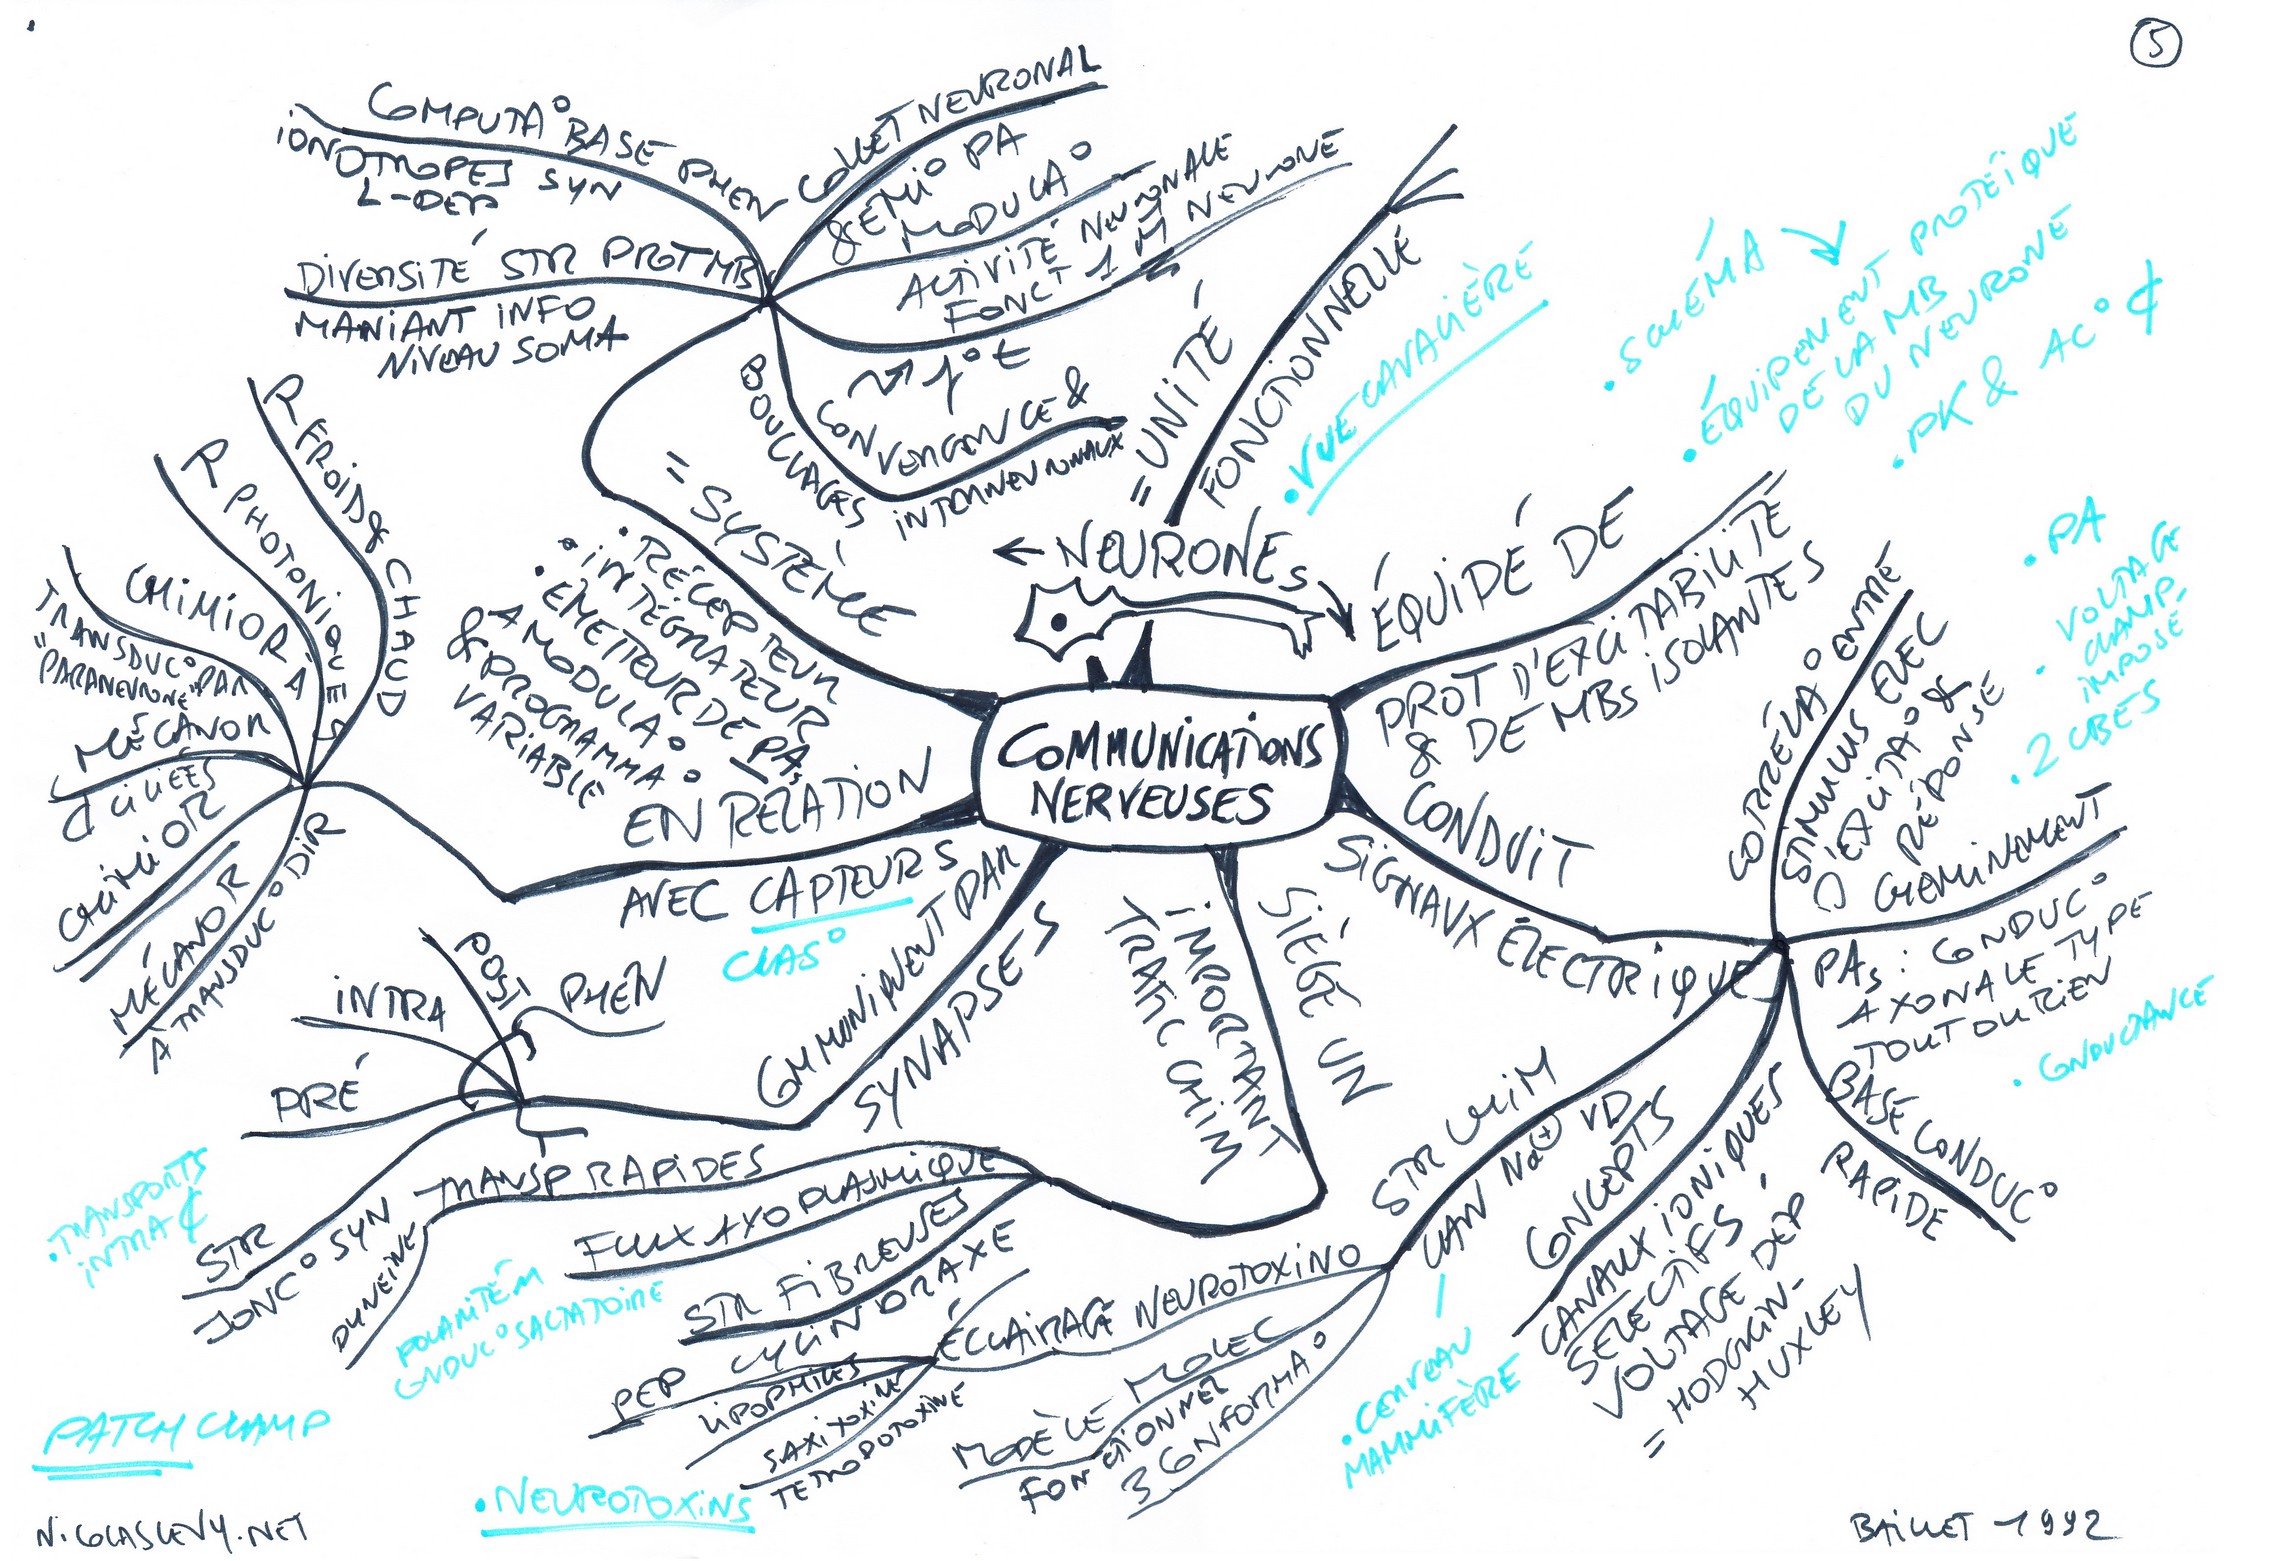 5
COMMUNICATIONS
NERVEUSES
← NEURONES
= UNITÉ
FONCTIONNELLE
• VUE CAVALIÈRE
• SCHÉMA
• ÉQUIPEMENT PROTÉIQUE
DE LA MB
DU NEURONE
• PK & AC° ₵
ÉQUIPÉ DE
PROT D'EXCITABILITÉ
& DE MBs ISOLANTES
• PA
• VOLTAGE
CLAMP-
IMPOSÉ
• 2 CBES
CONDUIT
SIGNAUX ÉLECTRIQUES
CORRÉLA° ENTRE
STIMULUS ELEC
D'EXCITA° &
RÉPONSE
CHEMINEMENT
PAs : CONDUC°
AXONALE TYPE
TOUT OU RIEN
• CONDUCTANCE
BASE CONDUC°
RAPIDE
CONCEPTS
CANAUX IONIQUES
SÉLECTIFS
VOLTAGE DÉP
= HODGKIN-
HUXLEY
STR CHIM
CAN Na⊕ VD
• CERVEAU
MAMMIFÈRE
ÉCLAIRAGE NEUROTOXINO
PEP
LIPOPHILES
SAXITOXINE
TETRODOTOXINE
MODÈLE MOLEC
FONCTIONNEL
3 CONFORMA°
• NEUROTOXINS
SIÈGE UN
IMPORTANT
TRAFIC CHIM
TRANSP RAPIDES
DYNEINE
FLUX AXOPLASMIQUE
STR FIBREUSES
CYLINDRAXE
POLARITÉ M
CONDUC° SALTATOIRE
• TRANSPORTS
INTRA ₵
COMMUNIQUENT PAR
SYNAPSES
PHEN
POST
INTRA
PRÉ
STR
JONC° SYN
EN RELATION
AVEC CAPTEURS
CLAS°
R FROID & CHAUD
R PHOTONIQUES
CHIMIOR À
TRANSDUC° PAR
"PARANEURONE"
MÉCANOR
₵ CILIÉES
CHIMIOR
MÉCANOR
À TRANSDUC° DIR
= SYSTÈME
• RÉCEPTEUR
• INTÉGRATEUR
• EMETTEUR DE PAs
À MODULA°
& PROGRAMMA°
VARIABLE
COMPUTA° BASE PHEN
IONOTROPES SYN
L-DEP
DIVERSITÉ STR PROT MB
MANIANT INFO
NIVEAU SOMA
COLLET NEURONAL
& EMI° PA
MODULA°
ACTIVITÉ NEURONALE
FONCT 1 M NEURONE
CONVERGENCE &
BOUCLAGES
INTERNEURONAUX
PATCH CLAMP
NICOLASLEVY.NET
BAILLET - 1992